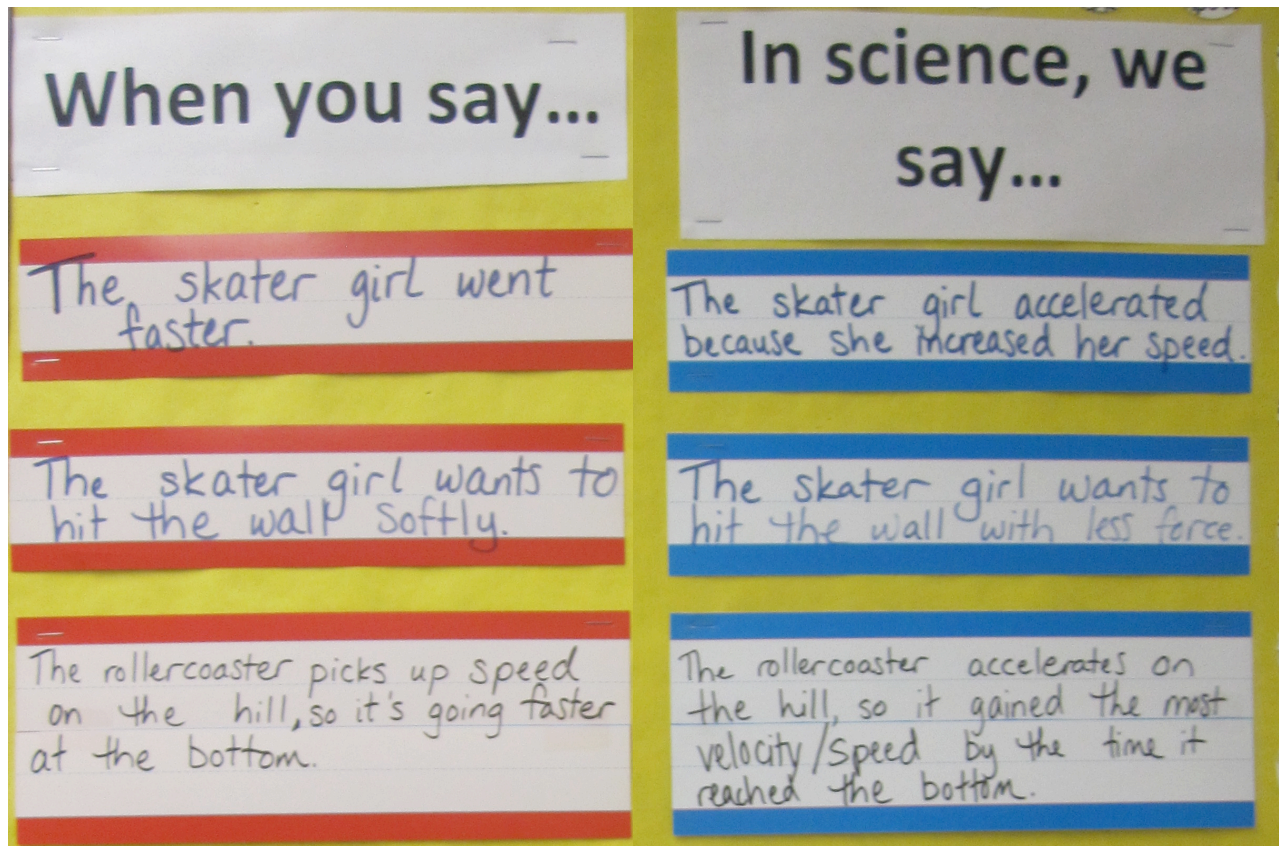 When you say...
The skater girl went
faster.
The skater girl wants to
hit the wall softly.
The rollercoaster picks up speed
on the hill, so it's going faster
at the bottom.
In science, we
say...
The skater girl accelerated
because she increased her speed.
The skater girl wants to
hit the wall with less force.
The rollercoaster accelerates on
the hill, so it gained the most
velocity/speed by the time it
reached the bottom.